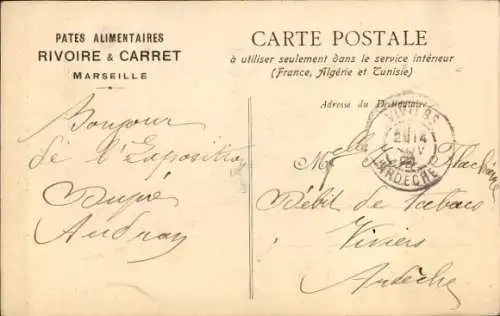 PATES ALIMENTAIRES
RIVOIRE & CARRET
MARSEILLE
CARTE POSTALE
à utiliser seulement dans le service intérieur
(France, Algérie et Tunisie)
Adresse du Destinataire
VIVIERS
ARDECHE
Bonjour
de l'Exposition
Dupré
Audran
Melle
Débit de tabacs
Viviers
Ardèche